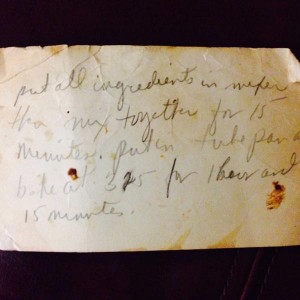 put all ingredients in mixer
then mix together for 15
minutes. put in tube pan
bake at 325 for 1 hour and
15 minutes.